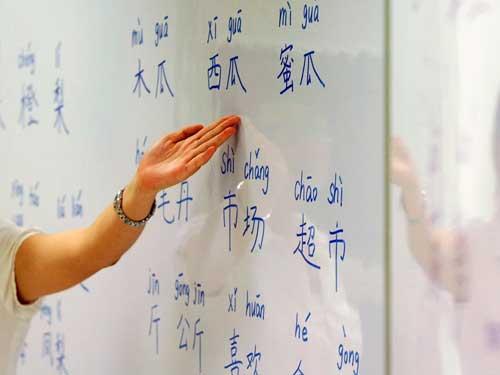 mù guā xī guā mì guā
lí
橙 梨 木瓜 西瓜 蜜瓜
hé shì chǎng
毛丹 市场 chāo shì
超市
jīn gōng jīn xǐ huān
斤 公斤 喜欢 hé
凤梨 gòng